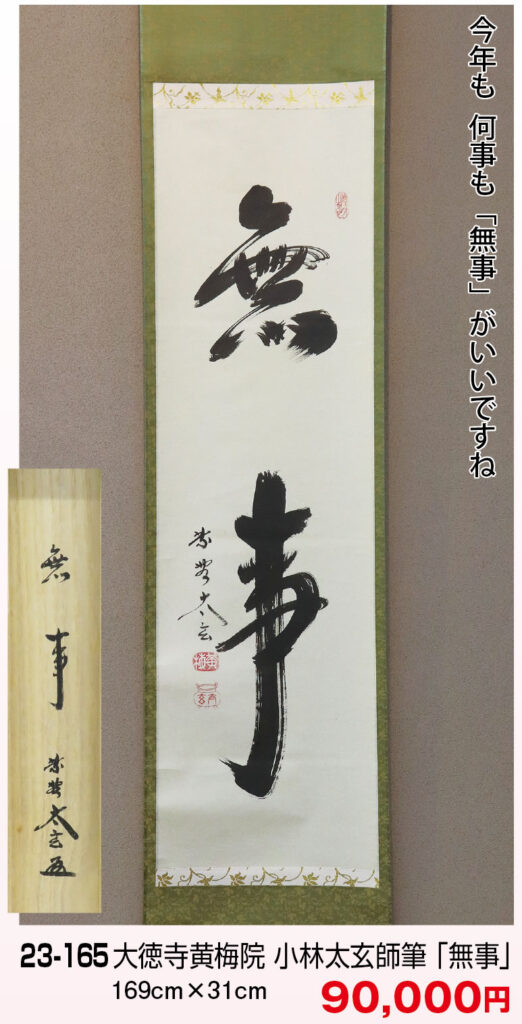 今年も 何事も「無事」がいいですね
無事
紫野 太玄
黄梅
太玄
無事
紫野 太玄
23-165 大徳寺黄梅院 小林太玄師筆「無事」
169cm×31cm
90,000円